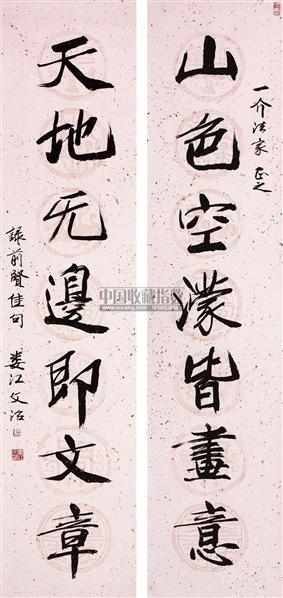 一介法家正之
山色空濛皆畫意
天地无邊即文章
録前賢佳句 娄江文治
中国收藏指南